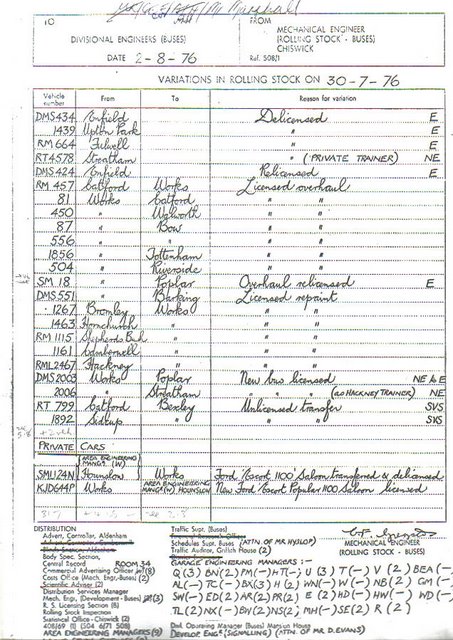 TO
DIVISIONAL ENGINEERS (BUSES)
DATE 2-8-76
FROM
MECHANICAL ENGINEER
(ROLLING STOCK - BUSES)
CHISWICK
Ref. 508/1
VARIATIONS IN ROLLING STOCK ON 30-7-76
Vehicle number From To Reason for variation
DMS434 Enfield Delicensed E
1439 Upton Park " E
RM 664 Fulwell " E
RT4578 Streatham " (PRIVATE TRAINER) NE
DMS424 Enfield Relicensed E
RM 457 Catford Works Licensed overhaul
81 Works Catford " "
450 " Walworth " "
87 " Bow " "
556 " " " "
1856 " Tottenham " "
504 " Riverside " "
SM 18 " Poplar Overhaul relicensed E
DMS551 " Barking Licensed repaint
1267 Bromley Works " "
1463 Hornchurch " " "
RM 1115 Shepherds Bush " " "
1161 Camberwell " " "
RML2467 Hackney " " "
DMS2003 Works Poplar New bus licensed NE & E
2006 " Streatham " " " (as HACKNEY TRAINER) NE
RT 799 Catford Bexley Unlicensed transfer SVS
1892 Sidcup " " " SVS
PRIVATE CARS
AREA ENGINEERING MANGR. (W)
SMU124N Hounslow Works Ford Escort 1100 Saloon transferred & delicensed
KJD644P Works AREA ENGINEERING MANGR (W) HOUNSLOW New Ford Escort Popular 1100 Saloon licensed
DISTRIBUTION
Advert. Controller, Aldenham
Body Spec. Section,
Central Record ROOM 34
Commercial Advertising Officer
Costs Office (Mech. Engr.-Buses) (2)
Scientific Adviser (2)
Distribution Services Manager
Mech. Engr. (Development - Buses) (3)
R. S. Licensing Section (8)
Rolling Stock Inspection
Statistical Office - Chiswick (2)
408/69 (1) 504 (671 508)
AREA ENGINEERING MANAGERS (9)
Traffic Supt. (Buses)
Schedules Supt. (Buses) (ATTN. OF MR HYSLOP)
Traffic Auditor, Griffith House (2)
GARAGE ENGINEERING MANAGERS :-
MECHANICAL ENGINEER
(ROLLING STOCK - BUSES)
Divl. Operating Manager (Buses) Mansion House
DEVELOP ENGR. (SIGNALLING) (ATTN OF MR D. EVANS)